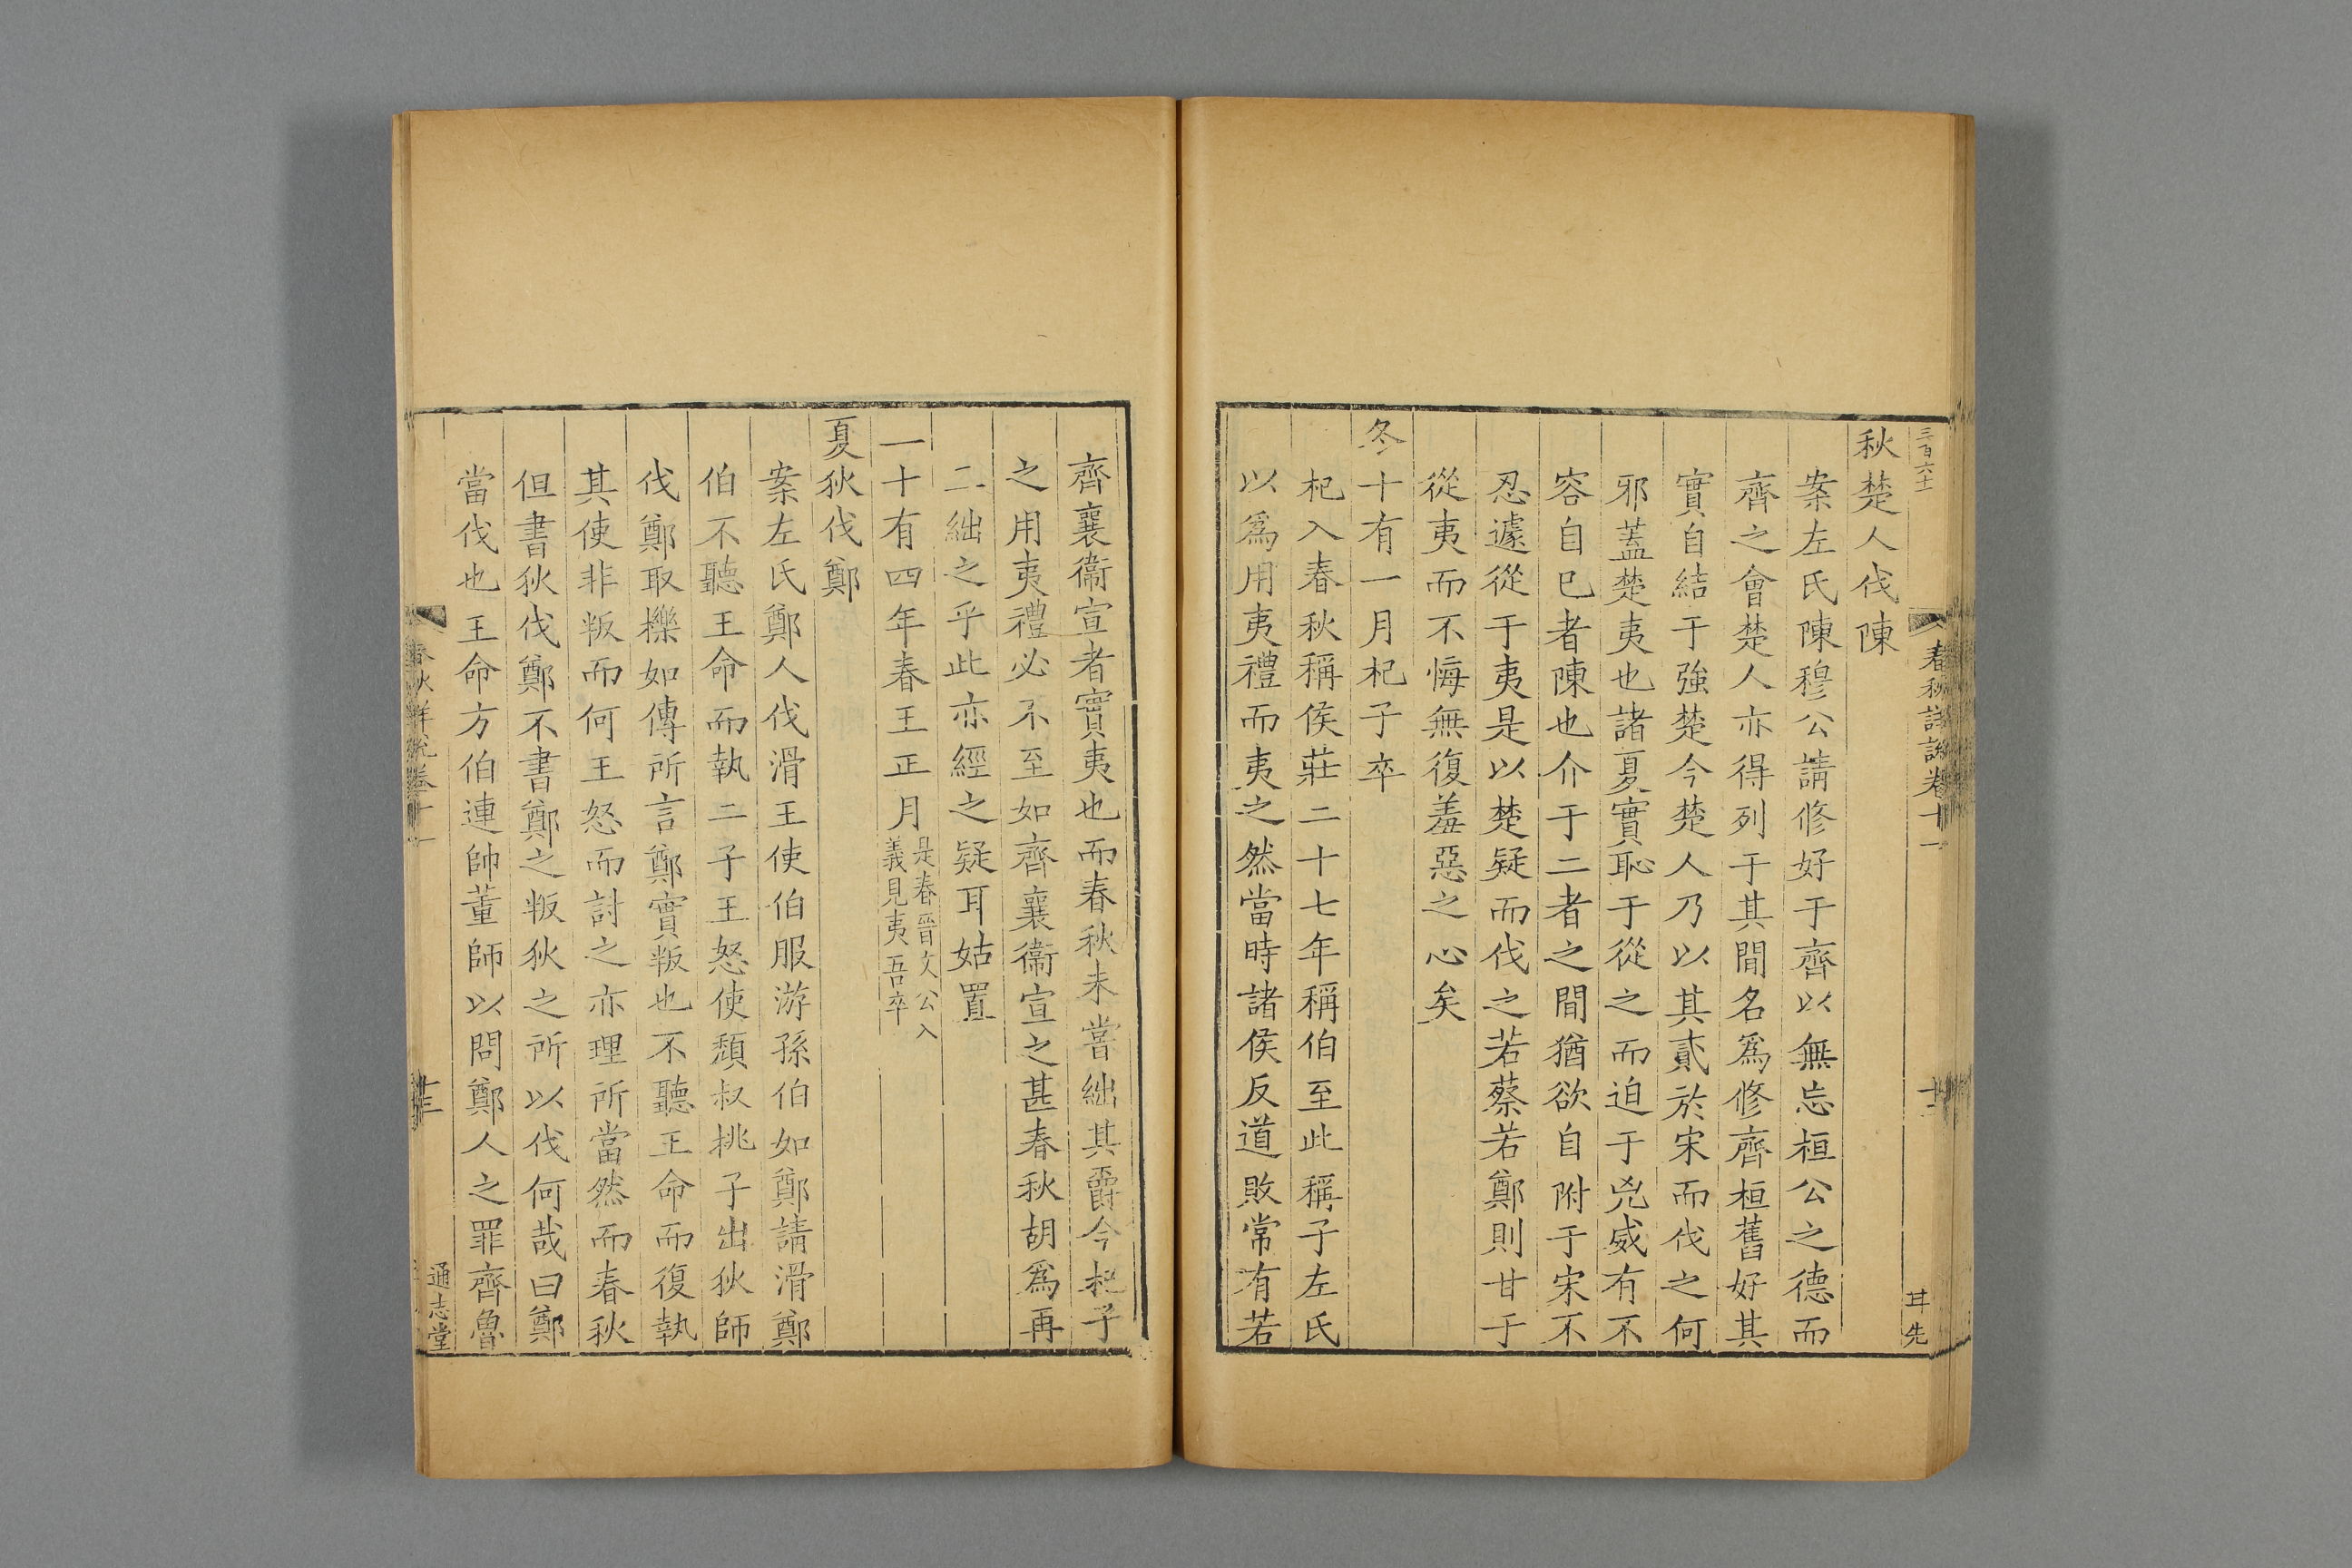 三百六十一
春秋詳說卷十一
十二
甘先
秋楚人伐陳
案左氏陳穆公請修好于齊以無忘桓公之德而
齊之會楚人亦得列于其間名爲修齊桓舊好其
實自結于強楚今楚人乃以其貳於宋而伐之何
邪蓋楚夷也諸夏實恥于從之而迫于兇威有不
容自巳者陳也介于二者之間猶欲自附于宋不
忍遽從于夷是以楚疑而伐之若蔡若鄭則甘于
從夷而不悔無復羞惡之心矣
冬十有一月杞子卒
杞入春秋稱侯莊二十七年稱伯至此稱子左氏
以爲用夷禮而夷之然當時諸侯反道敗常有若
齊襄衞宣者實夷也而春秋未嘗絀其爵今杞子
之用夷禮必不至如齊襄衞宣之甚春秋胡爲再
二絀之乎此亦經之疑耳姑置
一十有四年春王正月是春晉文公入義見夷吾卒
夏狄伐鄭
案左氏鄭人伐滑王使伯服游孫伯如鄭請滑鄭
伯不聽王命而執二子王怒使頹叔桃子出狄師
伐鄭取櫟如傳所言鄭實叛也不聽王命而復執
其使非叛而何王怒而討之亦理所當然而春秋
但書狄伐鄭不書鄭之叛狄之所以伐何哉曰鄭
當伐也王命方伯連帥董師以問鄭人之罪齊魯
春秋詳說卷十一
十三
通志堂